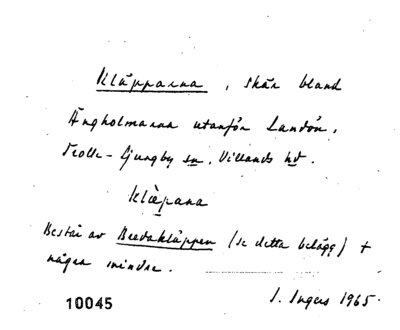 Kläpparna, skär bland
Ängholmarna utanför Landön,
Trolle-Ljungby sn, Villands hd.
klæpana
Består av Bredakläppen (se detta belägg) +
några mindre.
10045 I. Ingers 1965.